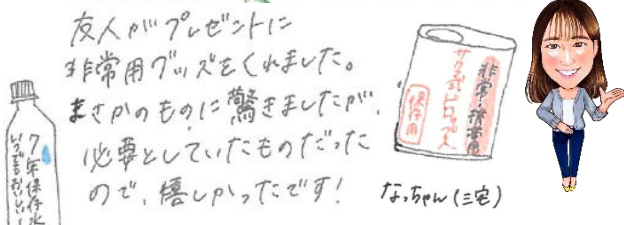 友人がプレゼントに
非常用グッズをくれました。
まさかのものに驚きましたが、
必要としていたものだった
ので、嬉しかったです!
なっちゃん(三宅)
7年保存水
いつでもおいしい!
非常・携帯用
サクマ式ドロップス
保存用